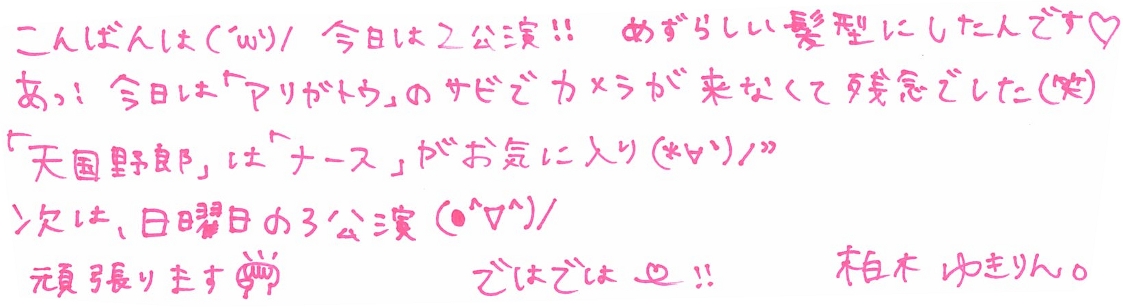 こんばんは(´ω`)/ 今日は2公演!! めずらしい髪型にしたんです♡
あっ! 今日は「アリガトウ」のサビでカメラが来なくて残念でした(笑)
「天国野郎」は「ナース」がお気に入り(*´∀`)/”
次は、日曜日の3公演(●^▽^)/
頑張ります ではでは!! 柏木ゆきりん。